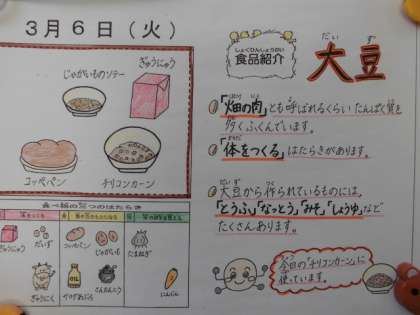 3月6日(火)
ぎゅうにゅう
じゃがいものソテー
コッペパン
チリコンカーン
食べ物の三つのはたらき
ぎゅうにゅう
だいず
ぎゅうにく
コッペパン
じゃがいも
たまねぎ
にんじん
しょくひんしょうかい
食品紹介
だいず
大豆
「畑の肉」とも呼ばれるくらい たんぱく質を
多くふくんでいます。
「体をつくる」はたらきがあります。
大豆から作られているものには、
「とうふ」「なっとう」「みそ」「しょうゆ」など
たくさんあります。
今日の「チリコンカーン」に
使っています。